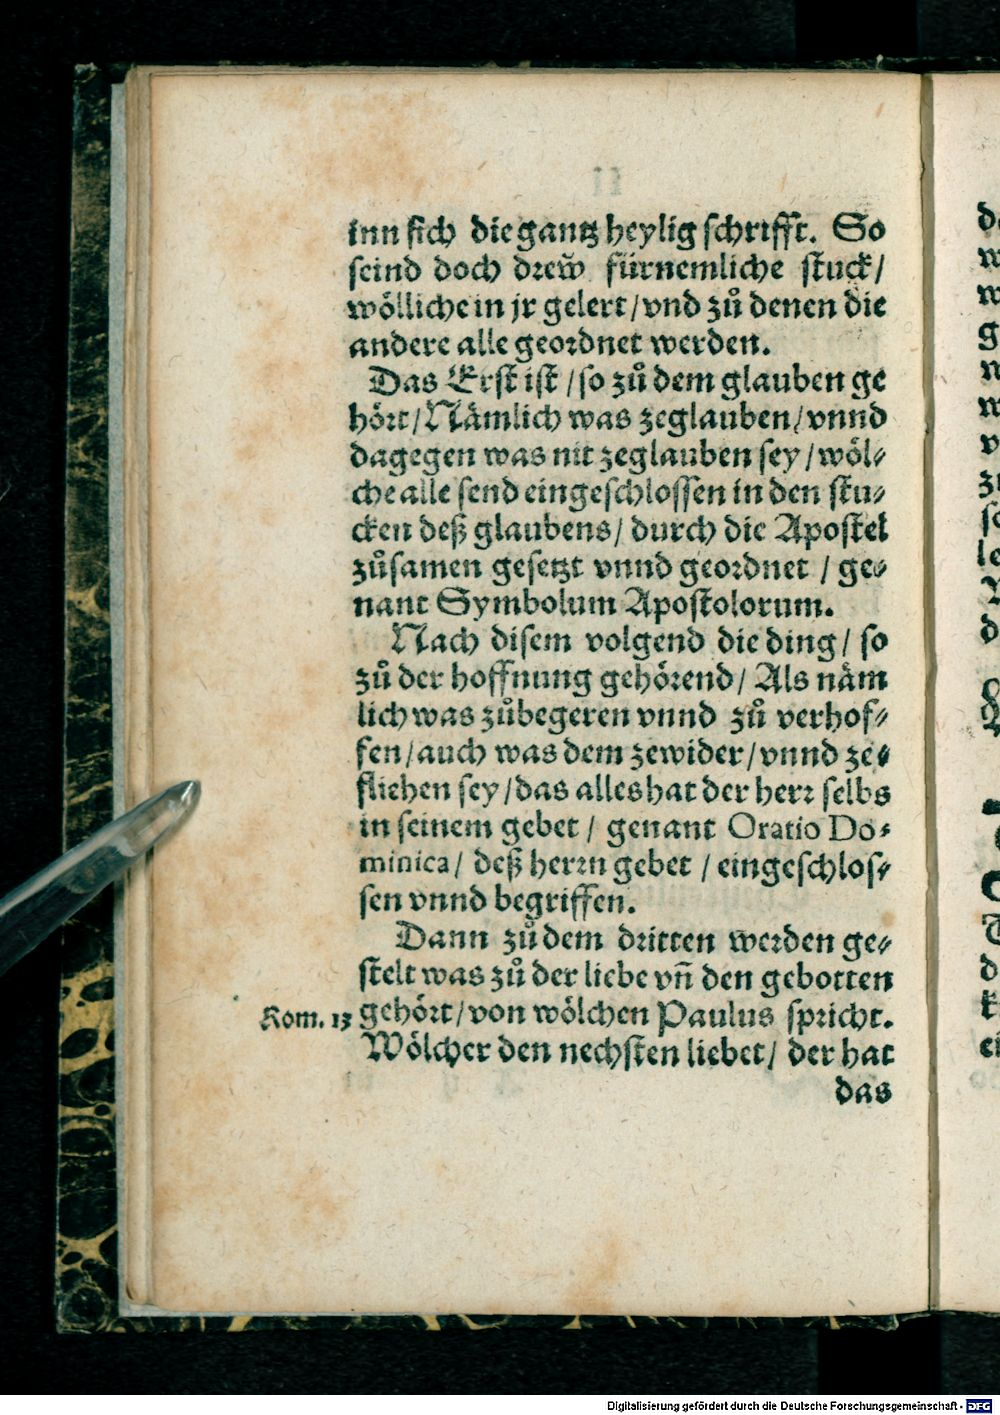 inn sich die gantz heylig schrifft. So
seind doch drew̆ fürnemliche stuck/
wölliche in jr gelert/vnd zů denen die
andere alle geordnet werden.
Das Erst ist/so zů dem glauben ge
hört/Nämlich was zeglauben/vnnd
dagegen was nit zeglauben sey/wöl⸗
che alle send eingeschlossen in den stu⸗
cken deß glaubens/durch die Apostel
zůsamen gesetzt vnnd geordnet /ge⸗
nant Symbolum Apostolorum.
Nach disem volgend die ding/so
zů der hoffnung gehörend/Als näm
lich was zůbegeren vnnd zů verhof⸗
fen/auch was dem zewider/vnnd ze⸗
fliehen sey/das alles hat der herr selbs
in seinem gebet/ genant Oratio Do⸗
minica/ deß herrn gebet /eingeschlos⸗
sen vnnd begriffen.
Dann zů dem dritten werden ge⸗
stelt was zů der liebe vn̄ den gebotten
Rom. 13 gehört/von wölchen Paulus spricht.
Wölcher den nechsten liebet/ der hat
das
Digitalisierung gefördert durch die Deutsche Forschungsgemeinschaft - DFG